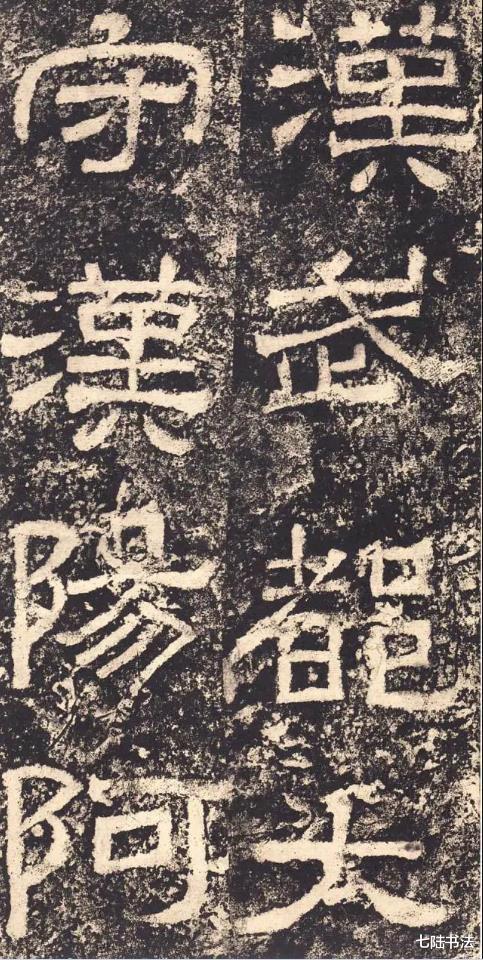 漢武都太
守漢陽阿
七陆书法